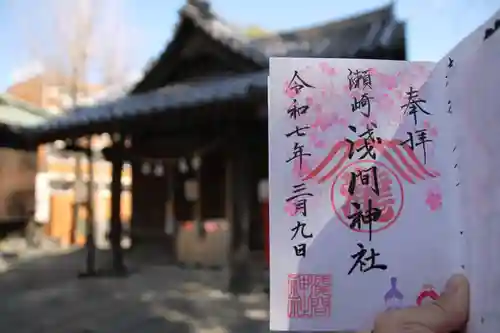 奉拝
瀬崎
浅間神社
令和七年三月九日